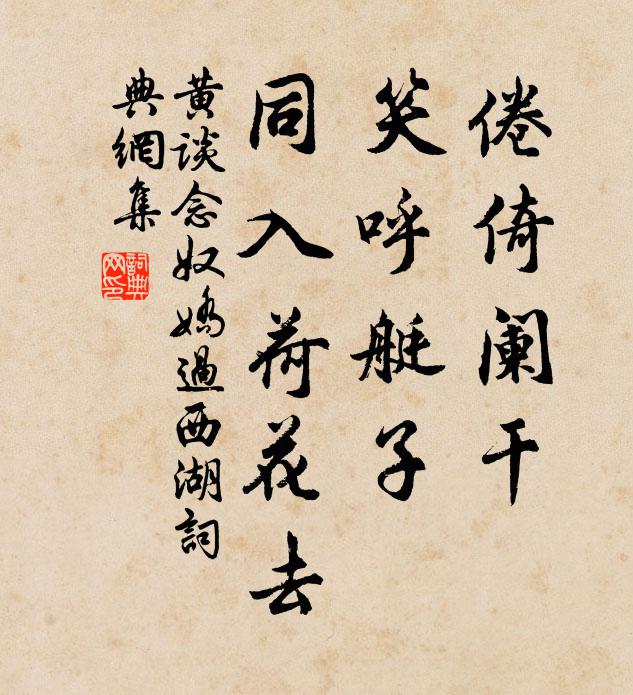 倦倚阑干
笑呼艇子
同入荷花去
黄谈念奴娇過西湖詞
典網集
詞典
网印